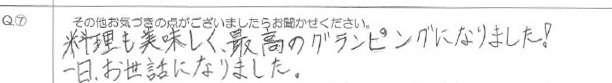 Q.⑦ その他お気づきの点がございましたらお聞かせください。
料理も美味しく、最高のグランピングになりました!
一日、お世話になりました。